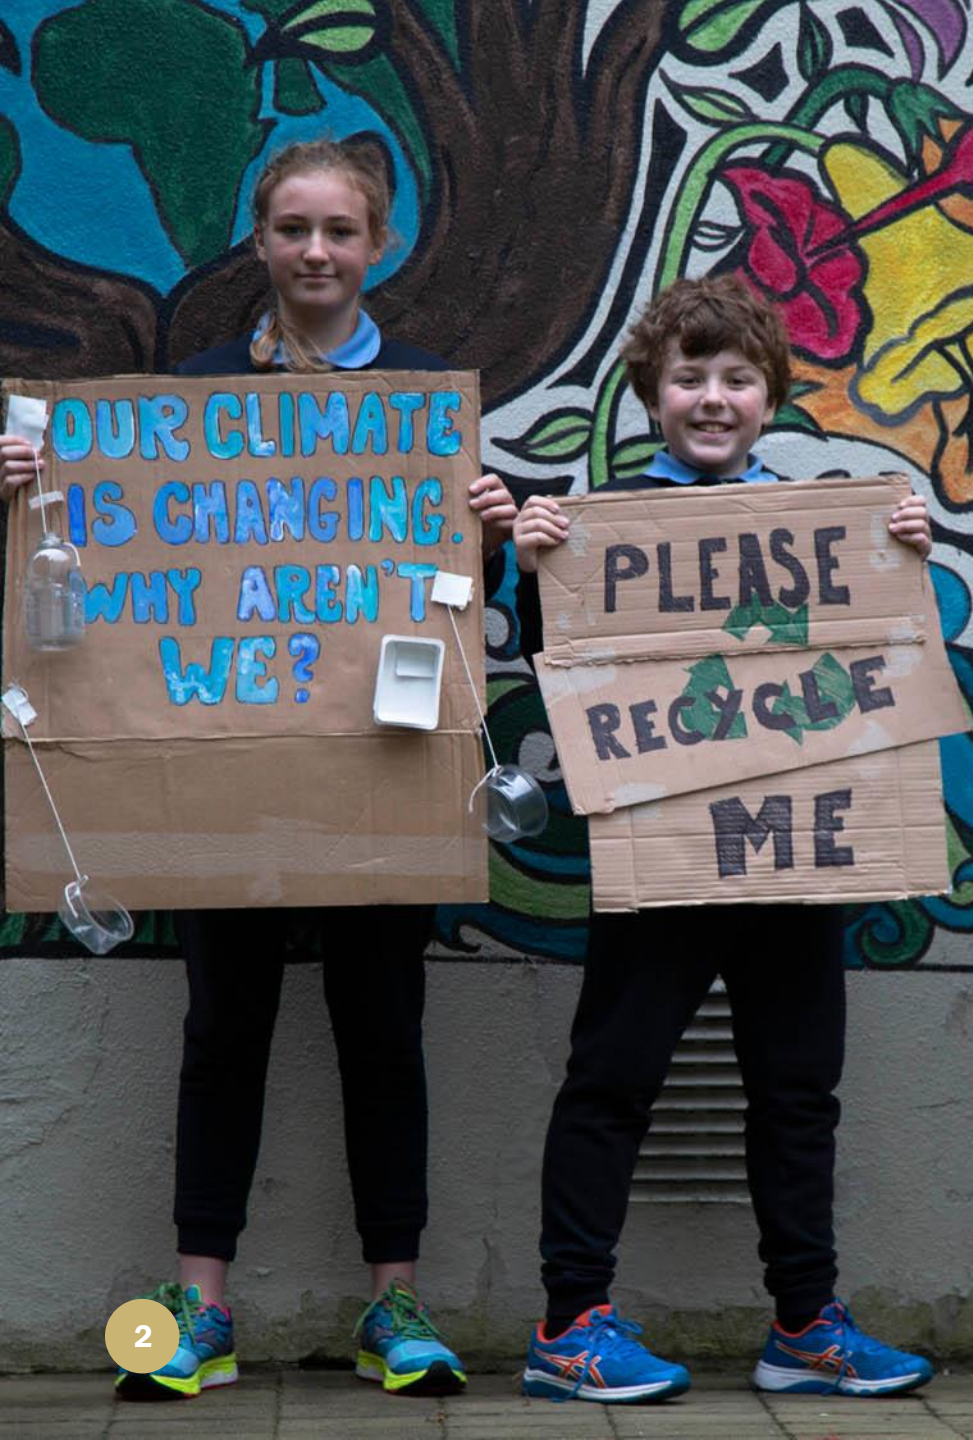 OUR CLIMATE
IS CHANGING.
WHY AREN'T
WE?
PLEASE
RECYCLE
ME
2